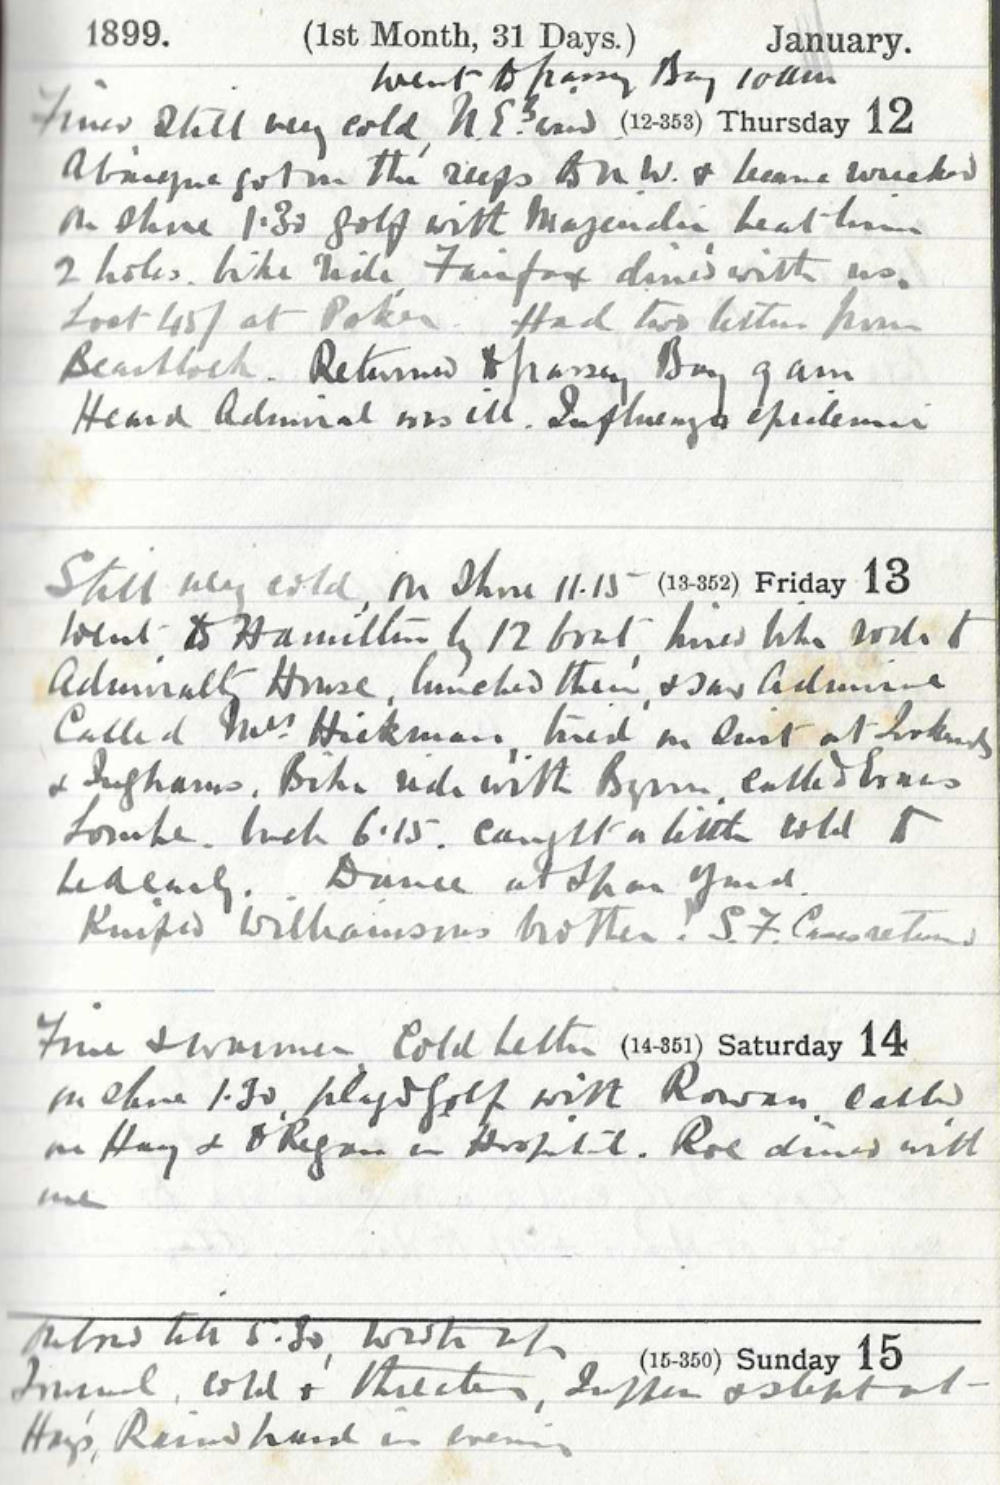 1899. (1st Month, 31 Days.) January.
went to Grassy Bay 10 am
Finer Still very cold, N.E. wind (12-353) Thursday 12
got on the reefs to N.W. & became wrecked
on shore 1.30 golf with beat him
2 holes. bike ride, Fairfax dined with us.
Lost 45/ at Poker. Had two letters from
Returned to Grassy Bay 9 am
Heard Admiral was ill. Influenza epidemic
Still very cold, on shore 11.15 (13-352) Friday 13
Went to Hamilton by 12 boat, hired bike rode to
Admiralty House, lunched there, & saw Admiral
Called Mrs. Hickman, tried on suit at
& Inghams. Bike ride with Byrne, called Evans
Lombe. back 6.15. caught a little cold to
bed early. Dance at Spar Yard.
Knifed Williamsons brother! S.F. returned
Fine & warmer Cold better (14-351) Saturday 14
on shore 1.30, played golf with Rowan, called
on Hay & O'Regan in Hospital. Roe dined with
me
on board till 5.30, wrote up
Journal, cold & & slept at (15-350) Sunday 15
Hays, Rained hard in evening